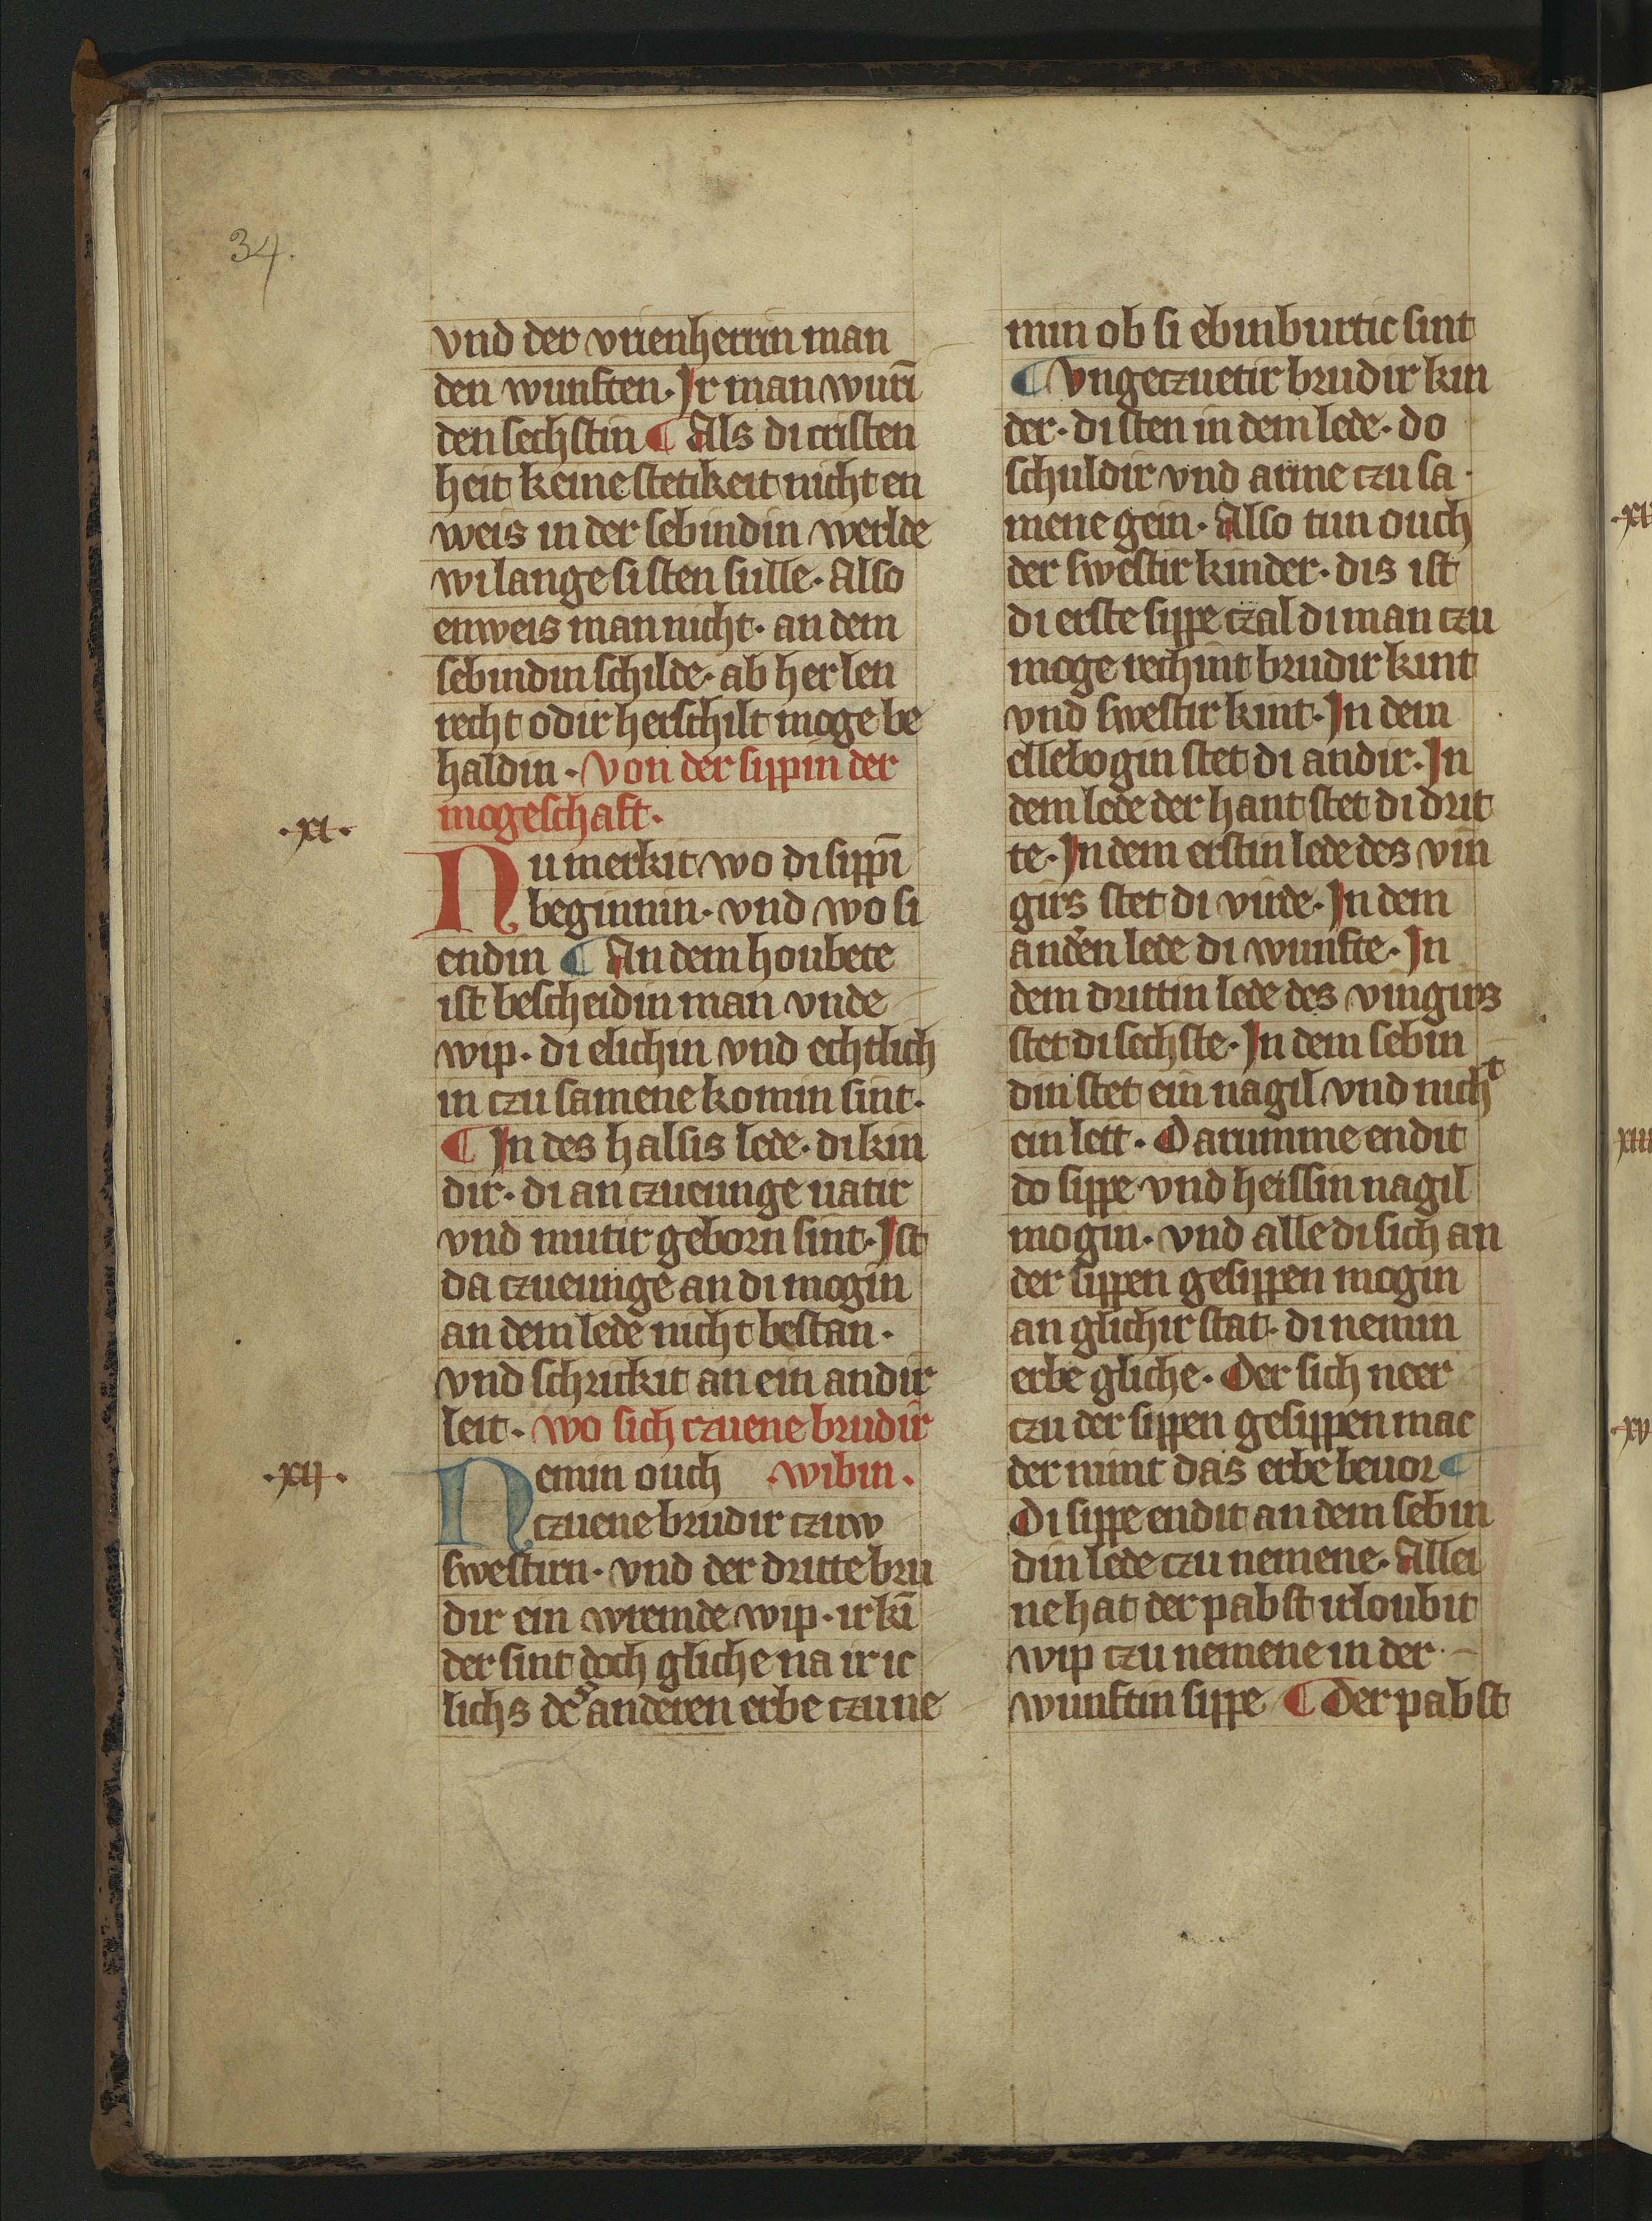 34.
vnd der vrienherrin man
den wunften. Ir man wurī
den sechstin ¶ Als di cristen
heit keine stetikeit nicht en
weis in der sebindin werlde
wi lange si sten sulle. Also
enweis man nicht. an dem
sebindin schilde. ab her len
recht odir herschilt moge be
haldin. Von der sippin der
mogeschaft.
.xi.
Nu merkit wo di sippī
beginnin. vnd wo si
endin ¶ An dem houbete
ist bescheidin man vnde
wip. di elichin vnd echtlich
in czu samene komin sint.
¶ In des halsis lede. di kin
dir. di an czueiunge uatir
vnd mutir geborn sint. Ist
da czueiunge an di mogin
an dem lede nicht bestan.
vnd schrickit an ein andir
leit. wo sich czuene brudir
.xij.
Nemin ouch wibin.
czuene brudir czuw
swestirn. vnd der dritte bru
dir ein wremde wip. ir kī
der sint doch gliche na ir ic
lichs des anderen erbe czu ne
min ob si ebinburtic sint
¶ Vngeczuetir brudir kin
der. di sten in dem lede. do
schuldir vnd arme czu sa
mene gein. Also tun ouch
der swestir kinder. dis ist
di erste sippe czal di man czu
moge rechint brudir kint
vnd swestir kint. In dem
ellebogin stet di andir. In
dem lede der hant stet di drit
te. In dem erstin lede des vin
girs stet di virde. In dem
anderen lede di wunfte. In
dem drittin lede des vingirs
stet di sechste. In dem sebin
din stet ein nagil vnd nicht
ein leit. Darumme endit
do sippe vnd heissin nagil
mogin. vnd alle di sich an
der sippen gesippen mogin
an glichir stat. di nemin
erbe gliche. Der sich neer
czu der sippen gesippen mac
der nimt das erbe beuor ¶
Di sippe endit an dem sebin
din lede czu nemene. Allei
ne hat der pabst irloubit
wip czu nemene in der
wunftin sippe ¶ Der pabst